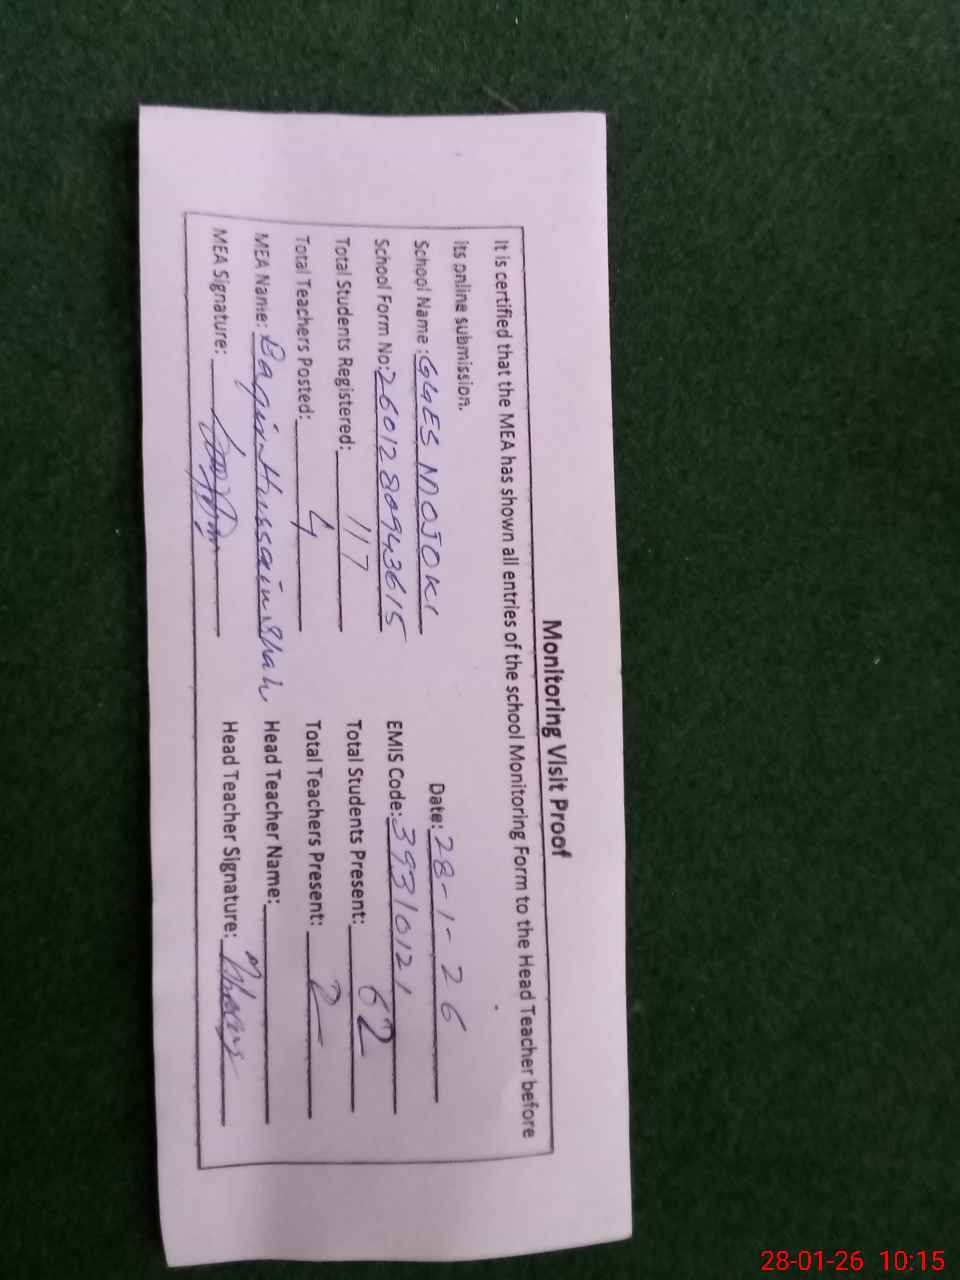 Monitoring Visit Proof
It is certified that the MEA has shown all entries of the school Monitoring Form to the Head Teacher before
its online submission.
Date: 28-1-26
School Name: GGES MOJOKI EMIS Code: 39310121
School Form No: 2601280943615 Total Students Present: 62
Total Students Registered: 117 Total Teachers Present: 2
Total Teachers Posted: 4 Head Teacher Name:
MEA Name: Baqir Hussain Shah Head Teacher Signature:
MEA Signature:
28-01-26 10:15